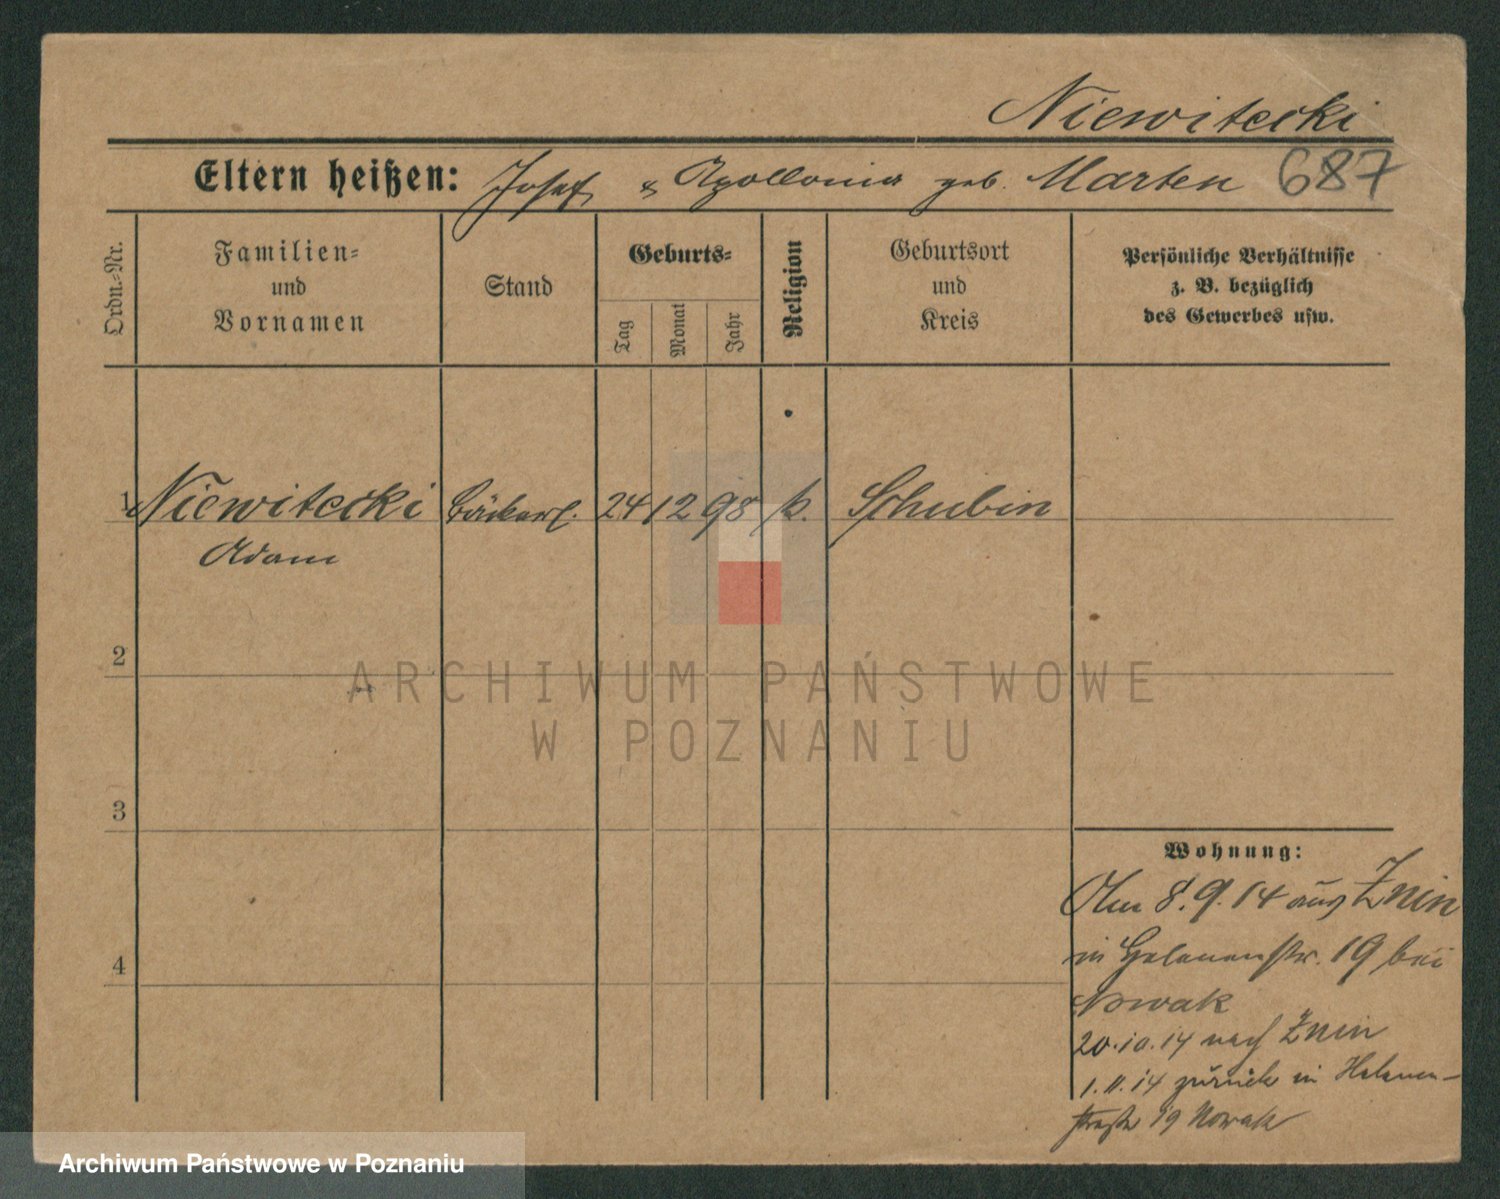 Niewitecki
Eltern heißen: Josef & Apollonia geb. Marten 687
Ordn.-Nr.
Familien-
und
Vornamen
Stand
Geburts-
Tag
Monat
Jahr
Religion
Geburtsort
und
Kreis
Persönliche Verhältnisse
z. B. bezüglich
des Gewerbes usw.
1 Niewitecki Bäckerl. 24 12 98 k. Schubin
Adam
2
3
4
ARCHIWUM PAŃSTWOWE
W POZNANIU
Wohnung:
Am 8.9.14 aus Znin
in Helenenstr. 19 bei
Nowak
20.10.14 nach Znin
1.11.14 zurück in Helenen-
straße 19 Nowak
Archiwum Państwowe w Poznaniu